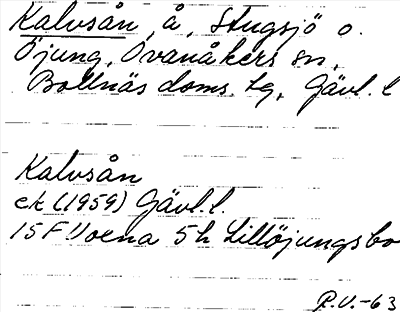 Kalvsån, å, Stugsjö o.
Öjung, Ovanåkers sn,
Bollnäs doms. tg, Gävl. l
Kalvsån
ek (1959) Gävl. l.
15F Voxna 5h Lillöjungsbo
R.V.-63